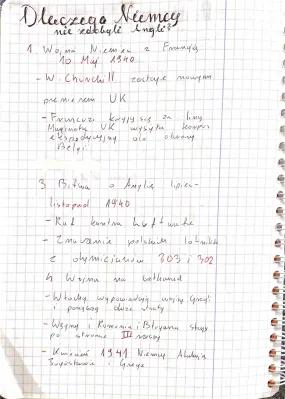 Dlaczego Niemcy
nie zdobyli Anglii?
1. Wojna Niemiec z Francją
10 Maj 1940
- W. Churchill zostaje nowym
premierem UK
- Francuzi kryją się za linią
Maginota, UK wysyła korpus
ekspedycyjny do obrony
Belgi
3. Bitwa o Anglię lipiec-
listopad 1940
- RAF kontra Luftwaffe
- Znaczenie polskich lotników
z dywizjonów 303 i 302
4 Wojna na Bałkanach
- Włochy wypowiadają wojnę Grecji
i ponoszą duże straty
- Węgry i Rumunia i Błgaria stają
po stronie III rzeszy
- Kwiecień 1941 Niemcy Atakują
Jugosławię i Grecję